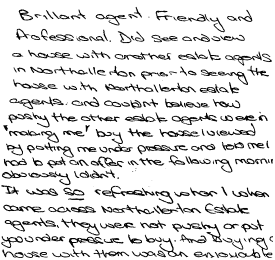 Brilliant agent. Friendly and
Professional. Did see and view
a house with another estate agents
in Northallerton prior to seeing the
house with Northallerton estate
agents. and couldn't believe how
pushy the other estate agents were in
"making me" buy the house I viewed
by putting me under pressure and told me I
had to put an offer in the following morning
obviously I didn't.
It was so refreshing when I when
came across Northallerton Estate
agents, they were not pushy or put
you under pressure to buy. And buying a
house with them was an enjoyable